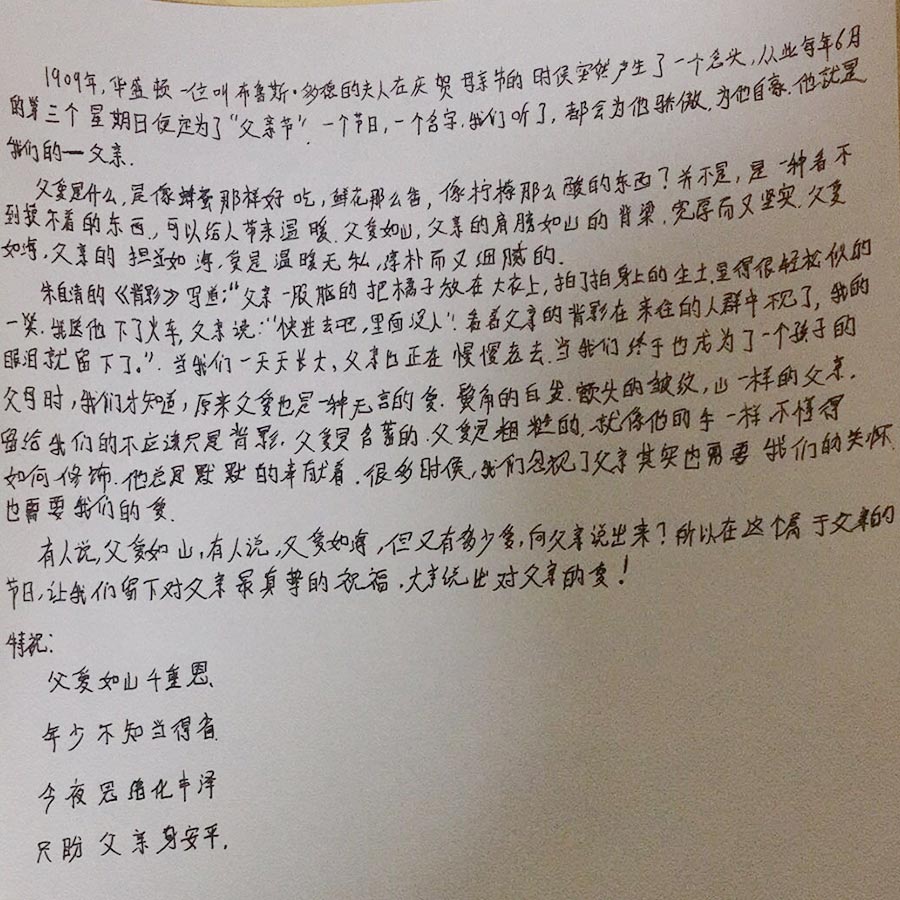 1909年,华盛顿一位叫布鲁斯·多德的夫人在庆贺母亲节的时侯突然产生了一个念头,从此每年6月
的第三个星期日便定为了“父亲节”.一个节日,一个名字.我们听了,都会为他骄傲.为他自豪.他就是
我们的一父亲.
父爱是什么,是像蜂蜜那样好吃,鲜花那么香,像柠檬那么酸的东西?并不是,是一种看不
到摸不着的东西.可以给人带来温暖.父爱如山,父亲的肩膀如山的脊梁.宽厚而又坚实.父爱
如海,父亲的担当如海,爱是温暖无私,淳朴而又细腻的.
朱自清的《背影》写道:“父亲一股脑的把橘子放在大衣上,拍了拍身上的尘土显得很轻松似的
一笑.我送他下了火车,父亲说:“快进去吧,里面没人”!看着父亲的背影在来往的人群中不见了,我的
眼泪就留下了。”.当我们一天天长大,父亲也正在慢慢老去.当我们终于也成为了一个孩子的
父母时,我们才知道,原来父爱也是一种无言的爱.鬓角的白发.额头的皱纹,山一样的父亲.
留给我们的不应该只是背影.父爱是含蓄的.父爱是粗糙的.就像他的手一样不懂得
如何修饰.他总是默默的奉献着.很多时候,我们忽视了父亲其实也需要我们的关怀.
也需要我们的爱.
有人说,父爱如山,有人说,父爱如海,但又有多少爱,向父亲说出来?所以在这个属于父亲的
节日,让我们留下对父亲最真挚的祝福.大声说出对父亲的爱!
特祝:
父爱如山千重恩.
年少不知当得省.
今夜思绪化丰泽
只盼父亲身安平.